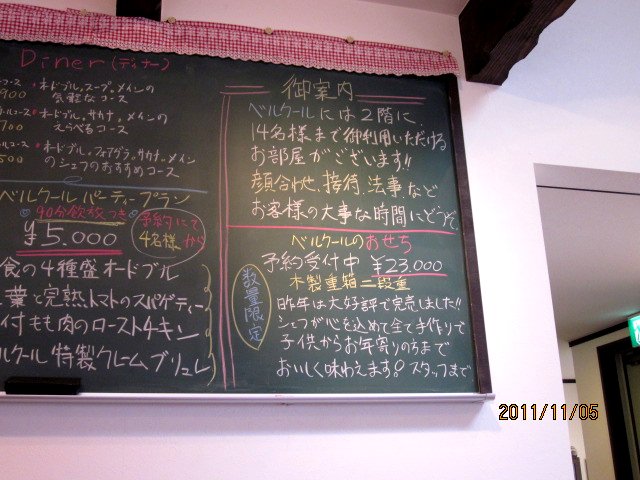 Diner (ディナー)
コース・オードブル。スープ。メインの
900 気軽なコース
コース・オードブル。サカナ。メイン
700 えらべるコース
コース・オードブル。フォアグラ。サカナ。メイン
500 のシェフのおすすめコース
ベルクール パーティープラン
90分飲放つき
¥5.000
予約にて
4名様から
食の4種盛オードブル
葉と完熟トマトのスパゲティー
付もも肉のローストチキン
ルクール特製クレームブリュレ
御案内
ベルクールには2階に
14名様まで御利用いただける
お部屋がございます!!
顔合わせ、接待、法事、など
お客様の大事な時間にどうぞ
ベルクールのおせち
予約受付中 ¥23.000
木製重箱二段重
数量限定
昨年は大好評で完売しました!!
シェフが心を込めて全て手作りで
子供からお年寄りの方まで
おいしく味わえます! スタッフまで
2011/11/05